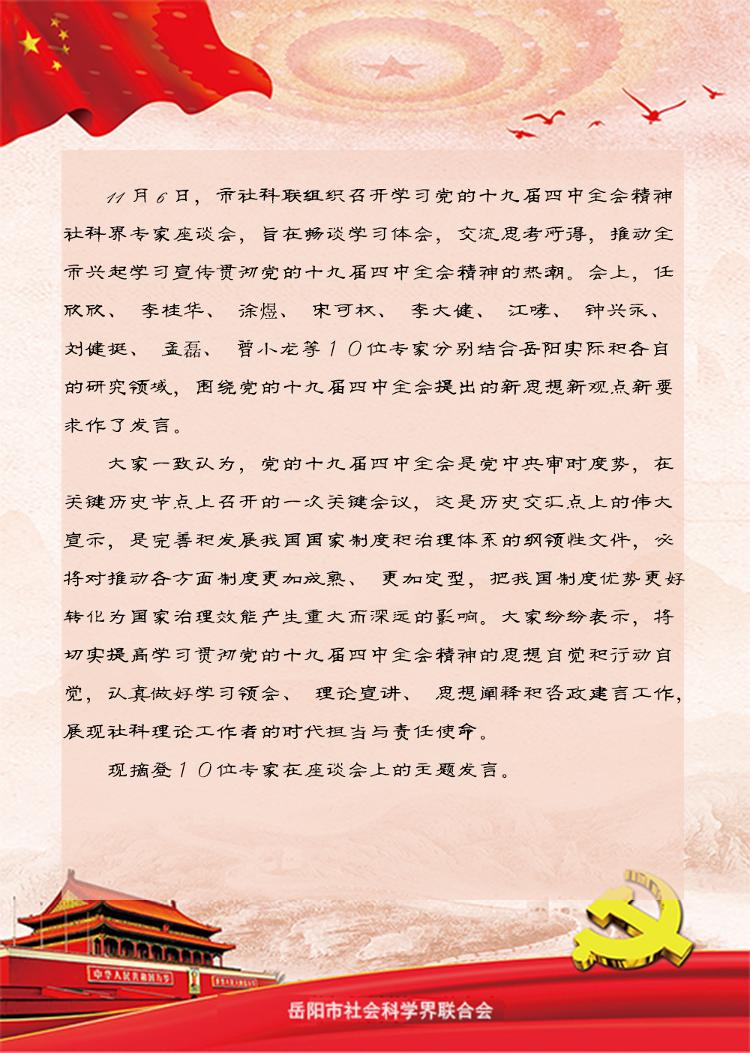 11月6日，市社科联组织召开学习党的十九届四中全会精神
社科界专家座谈会，旨在畅谈学习体会，交流思考所得，推动全
市兴起学习宣传贯彻党的十九届四中全会精神的热潮。会上，任
欣欣、 李桂华、 涂煜、 宋可权、 李大健、 江哮、 钟兴永、
刘健挺、 孟磊、 曾小龙等10位专家分别结合岳阳实际和各自
的研究领域，围绕党的十九届四中全会提出的新思想新观点新要
求作了发言。
大家一致认为，党的十九届四中全会是党中央审时度势，在
关键历史节点上召开的一次关键会议，这是历史交汇点上的伟大
宣示，是完善和发展我国国家制度和治理体系的纲领性文件，必
将对推动各方面制度更加成熟、 更加定型，把我国制度优势更好
转化为国家治理效能产生重大而深远的影响。大家纷纷表示，将
切实提高学习贯彻党的十九届四中全会精神的思想自觉和行动自
觉，认真做好学习领会、 理论宣讲、 思想阐释和咨政建言工作，
展现社科理论工作者的时代担当与责任使命。
现摘登10位专家在座谈会上的主题发言。
中华人民共和国万岁
岳阳市社会科学界联合会